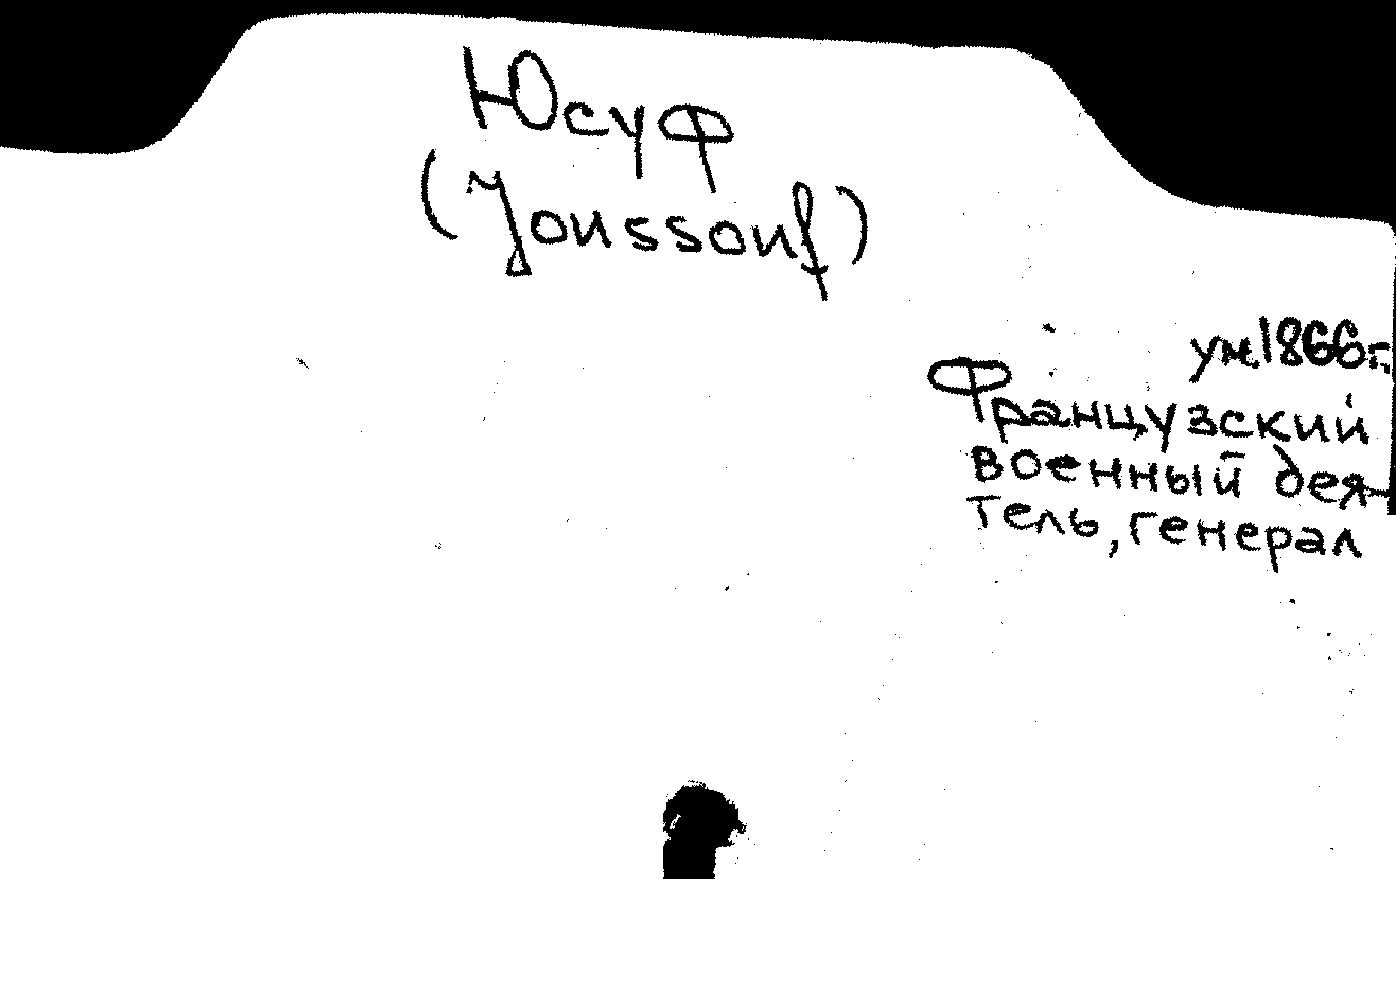 Юсуф
(Youssouf)
ум. 1866 г.
Французский
военный дея-
тель, генерал